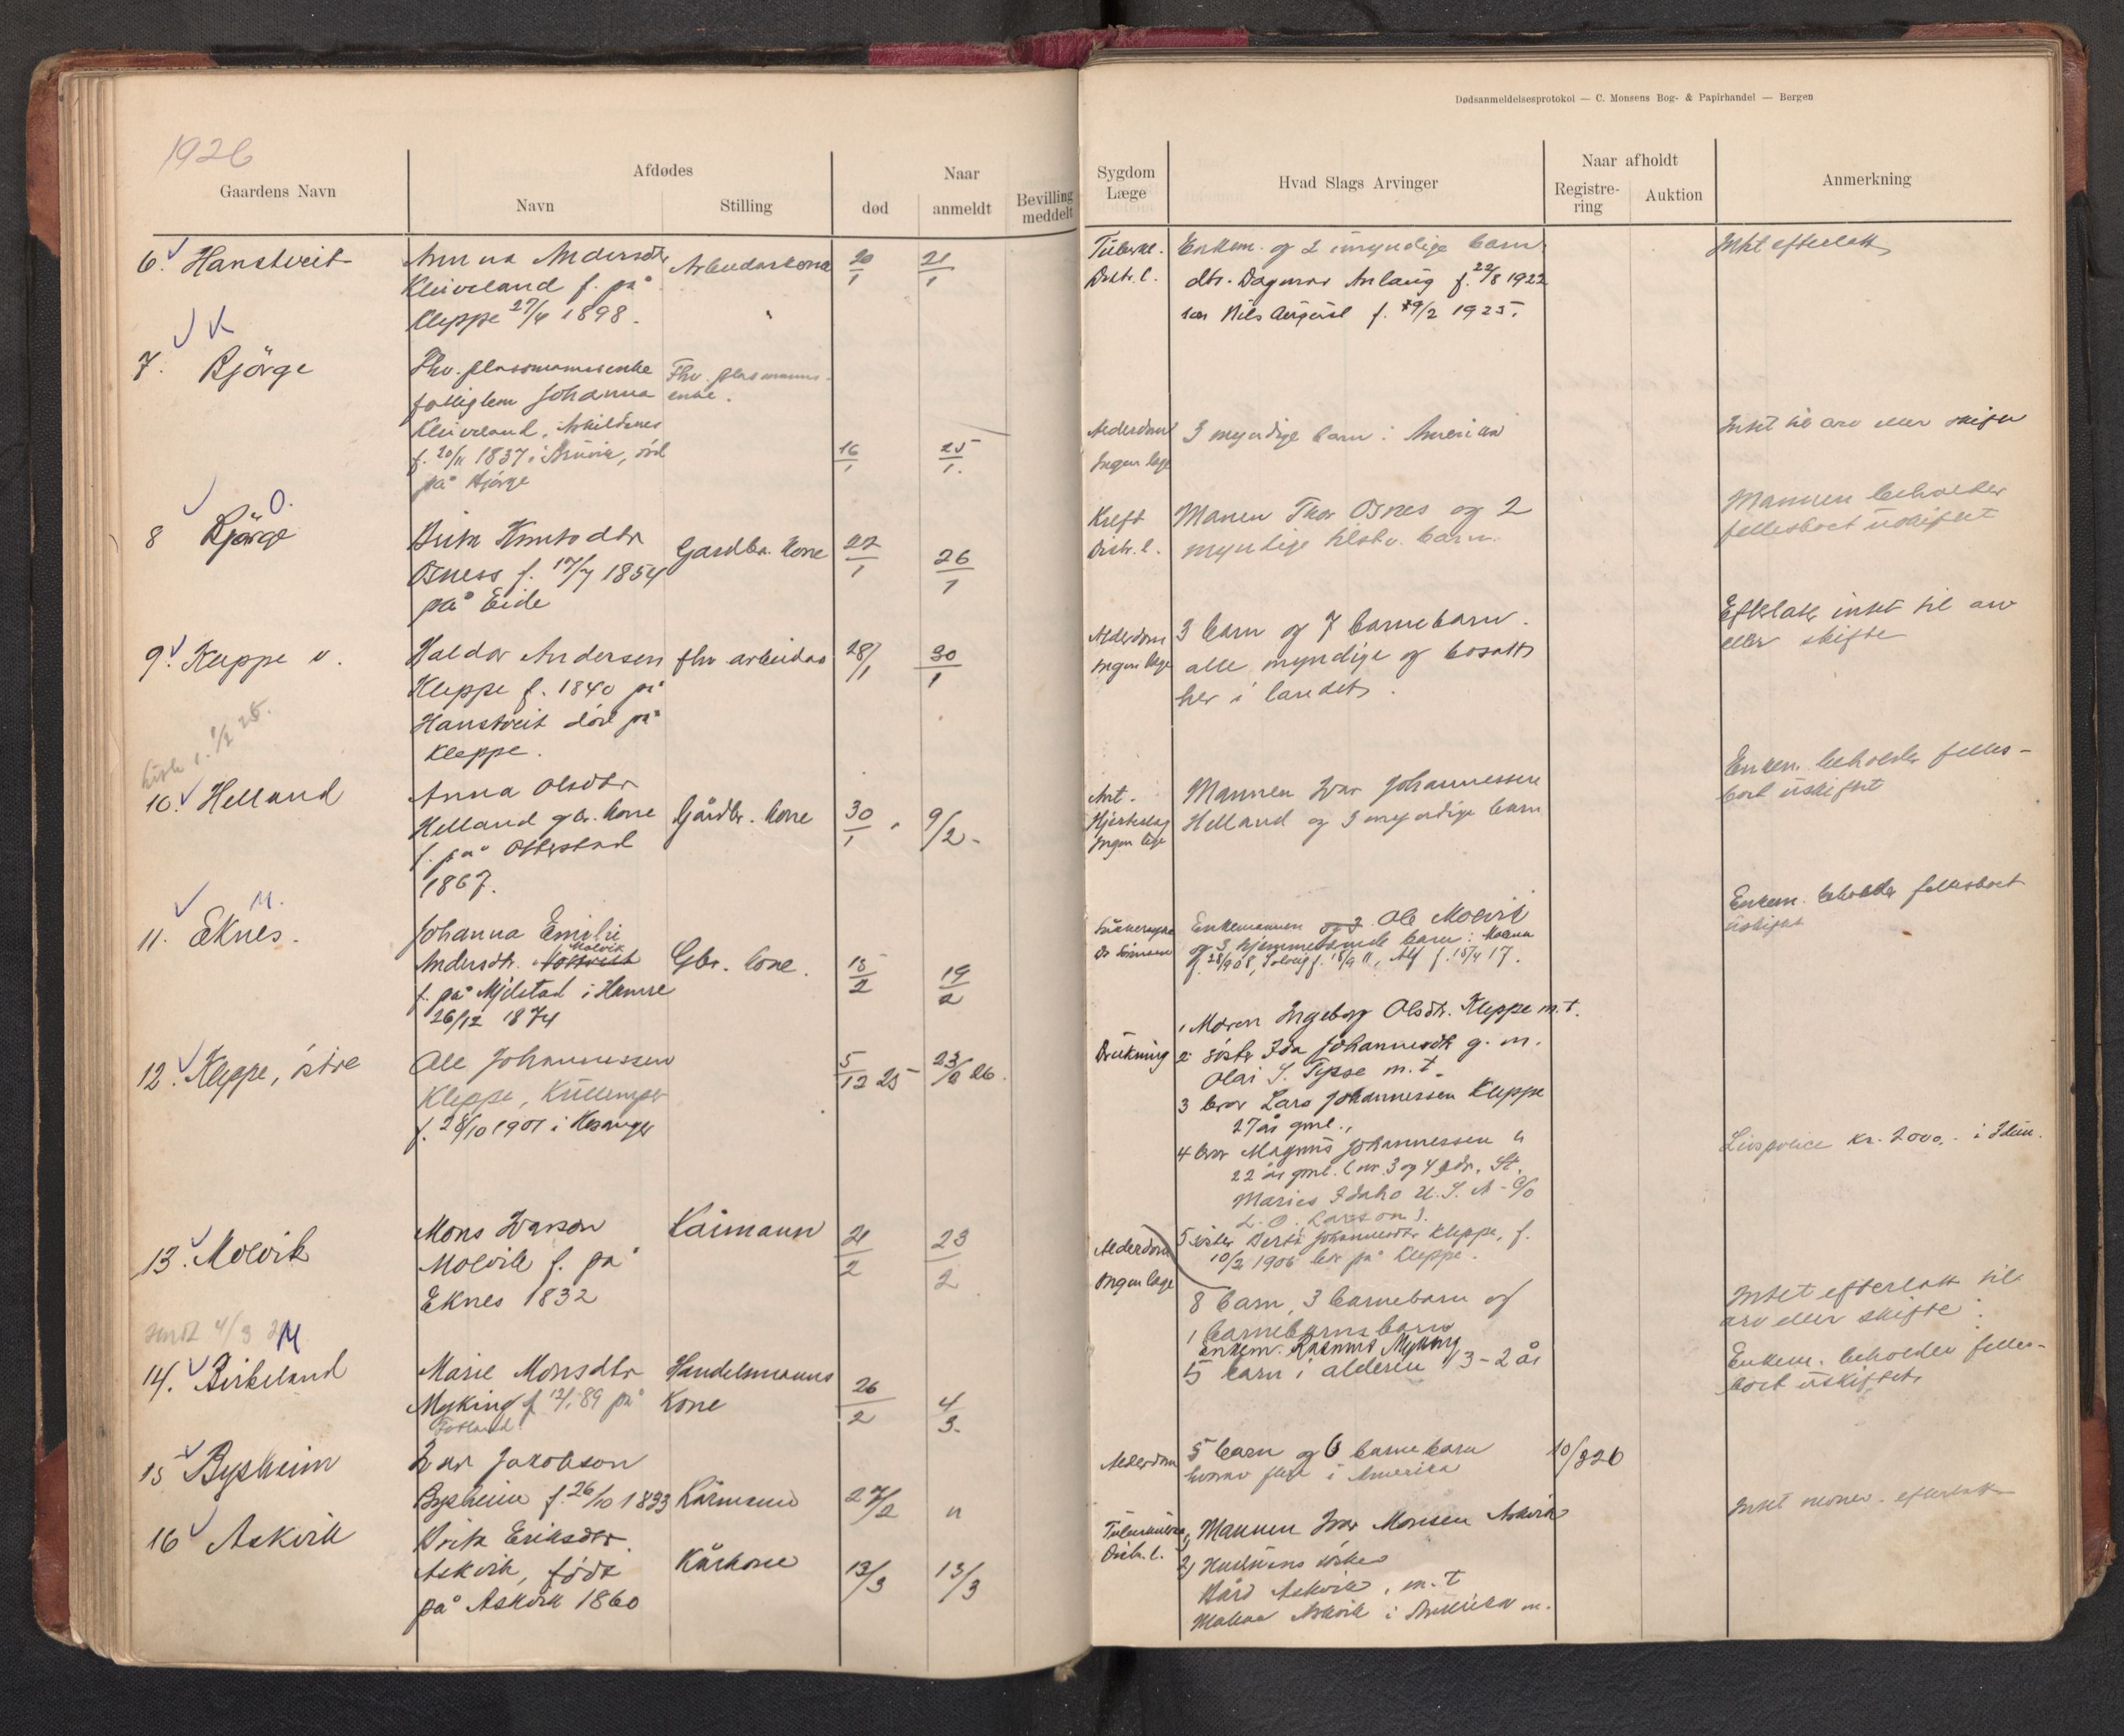 Dødsanmeldelsesprotokol — C. Monsens Bog- & Papirhandel — Bergen
1926
Gaardens Navn
Afdødes
Navn
Stilling
Naar
død
anmeldt
Bevilling
meddelt
Sygdom
Læge
Hvad Slags Arvinger
Naar afholdt
Registre-
ring
Auktion
Anmerkning
6. Hanstveit
Anna Andersdtr
Kleiveland f. på
Kleppe 27/4 1898.
Arbeiderkone
20/1
21/1
Tuberkl.
Distr. l.
Enkem. og 2 umyndige barn
dtr. Dagmar Anlaug f. 22/8 1922
søn Nils August f. 9/2 1925.
Intet efterlatt
K
7. Bjørge
Fhv. plassmannsenke
fattiglem Johanna
Kleiveland,
f. 20/11 1837 i Bruvik, død
på Bjørge
Fhv. plasmanns-
enke.
16/1
25/1.
Alderdom
Ingen læge
3 myndige barn i Amerika
Intet til arv eller skifte
O.
8 Bjørge
Brita Knutsdtr
Osness f. 17/7 1854
på Eide
Gardbr. kone
22/1
26/1
Kreft
Distr. l.
Manen Thor Osnes og 2
myndige barn.
Mannen beholder
fellesboet uskiftet
9. Kleppe v.
Haldor Andersen
Kleppe f. 1840 på
Hanstveit død på
Kleppe.
fhv arbeider
28/1
30/1
Alderdom
Ingen læge
3 barn og 7 barnebarn.
alle myndige og bosatt
her i landet.
Efterlater intet til arv
eller skifte
10. Helland
Anna Olsdtr
Helland gbr. kone
f. på Otterstad
1867.
Gårdbr. kone
30/1
9/2
Ant.
Hjerteslag
Ingen læge
Mannen Ivar Johannessen
Helland og 3 myndige barn
Enkem. beholder felles-
boet uskiftet
M.
11. Eknes.
Johanna Emilie
Molvik
Andersdtr.
f. på Mjelstad i Hamre
26/12 1874
Gbr. kone.
15/2
19/2
Enkemannen og 3 Ole Molvik
og 3 hjemmeværende barn: Malena
f. 28/9 08, Solveig f. 18/9 11, Alf f. 15/4 17.
Enkem. beholder fellesboet
uskiftet
12. Kleppe, østre
Ole Johannessen
Kleppe,
f. 28/10 1901 i Hosanger
5/12 25
23/2 26.
Drukning
1 Moren Ingeborg Olsdtr. Kleppe m.t.
2 søster Ida Johannesdtr g. m.
Olai S. Tepse m.t.
3 bror Lars Johannessen Kleppe
27 år gml.,
4 bror Magnus Johannessen "
22 år gml. (nr. 3 og 4 adr. St.
Maries Idaho U.S.A. c/o
L. O. Larson).
5 søster Berta Johannesdtr Kleppe, f.
10/2 1906 bor på Kleppe.
Livspolice kr. 2000.- i Idun.
13. Molvik
Mons Ivarson
Molvik f. på
Eknes 1832
Kårmann
21/2
23/2
Alderdom
Ingen læge
8 barn, 3 barnebarn og
1 barnebarnsbarn
Intet efterlatt til
arv eller skifte.
M
14. Birkeland
Marie Monsdtr
Myking f. 12/1 89 på
Fotland
Handelsmanns
kone
26/2
4/3.
Enkem. Rasmus Myking
5 barn i alderen 13-2 år
Enkem. beholder felles-
boet uskiftet
15 Bysheim
Ivar Jakobson
Bysheim f. 26/10 1833
Kårmann
27/2
"
Alderdom
5 barn og 6 barnebarn
hvorav flere i Amerika
10/3 26
16 Askvik
Brita Eriksdtr.
Askvik, født
på Askvik 1860
Kårkone
13/3
13/3
Tuberkulose
Distr. l.
1) Mannen Ivar Monsen Askvik
2)
Bård Askvik, m.t
Askvik i Amerika m.
Intet efterlatt